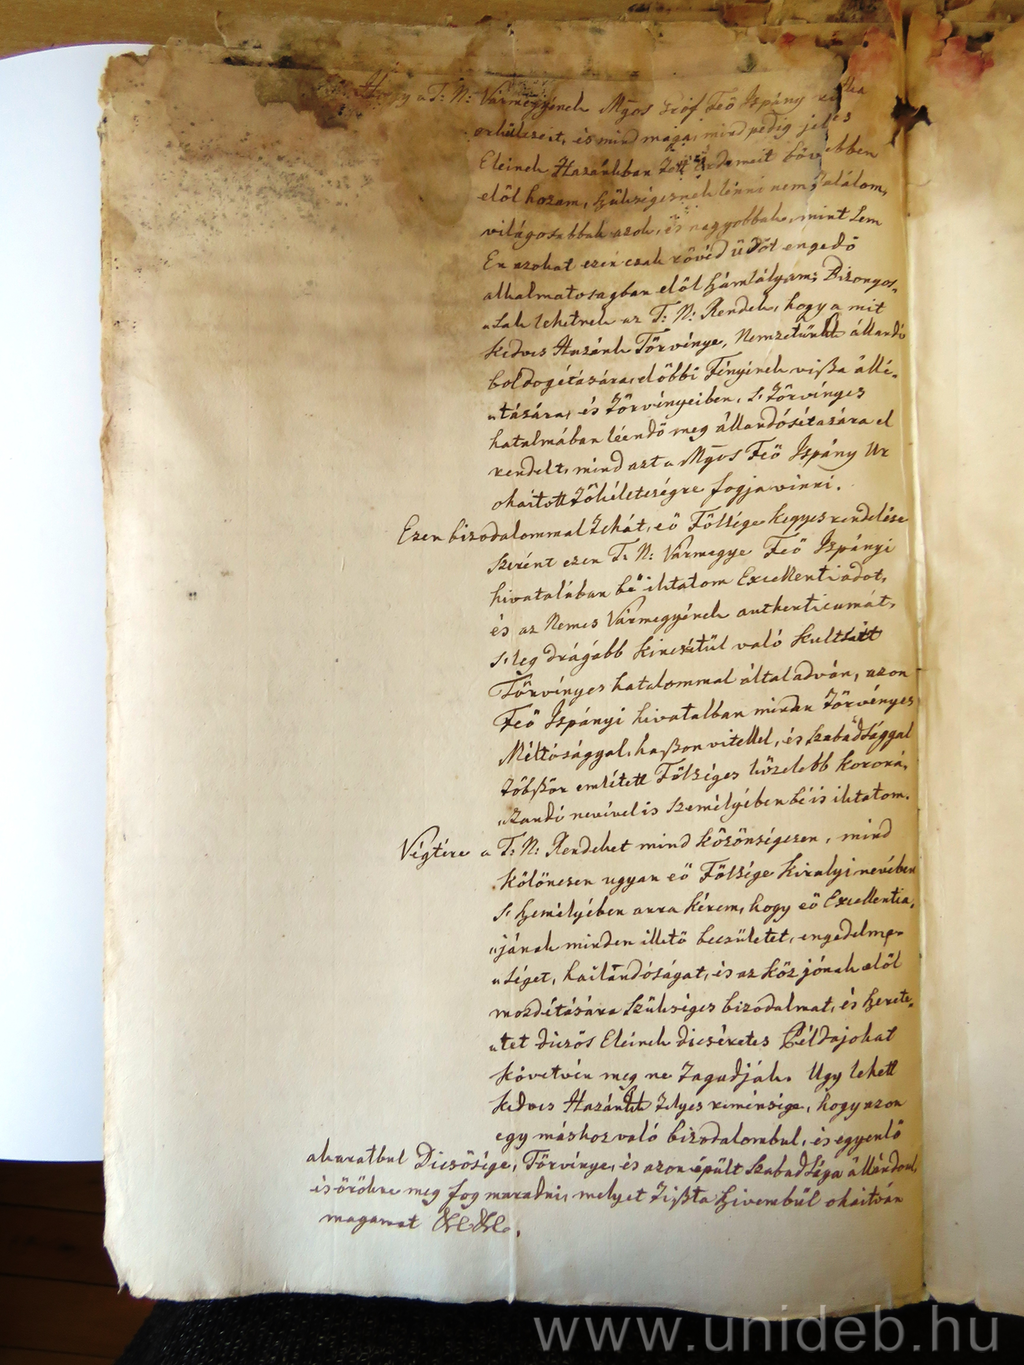 Hogy a T: N: Vármegyének Mgos Gróf Feő Ispány
és mind maga, mind pedig jeles
Eleinek Hazánkban Tett Érdemeit bővebben
elől hozam, szükségesnek lenni nem Találom,
világosabbak azok, és nagyobbak, mint sem
En azokat ezen csak rövid üdőt engedő
alkalmatosagban elől számlályam; Bizonyos„
„sak lehetnek az T: N: Rendek, hogy a mit
kedves Hazánk Törvénye, Nemzetünk állandó
boldogétására, előbbi Fényének vißa álli„
„tására, és Törvényeiben, s' Törvényes
hatalmában léendő meg állandósétasára el
rendelt, mind azt a Mgos Feő Ispány Ur
ohaitott Tökéleteségre fogja vinni.
Ezen bizodalommal Tehát, eő Fölsége kegyes rendelése
szerént ezen T: N: Vármegye Feő Ispányi
hivatalában bé iktatom Excellentiádot,
és az Nemes Vármegyének authenticumát,
s' leg drágább kincsétül való kultsátt
Törvényes hatalommal által adván, azon
Feő Ispányi hivatalban minden Törvényes
Méltósággal, haßon vitellel, és szabadsággal
Többßör emlétett Fölséges közelebb koroná„
„zandó nevével is személyében bé is iktatom.
Végtére a T: N: Rendeket mind közönségesen, mind
kölönesen ugyan eő Fölsége Kiralyi nevében
s' személyében arra kérem, hogy eő Excellentia„
„jának minden illető becsületet, engedelme„
„séget, hailandóságat, és az köz jónak elől
mozdétására szükséges bizodalmat, és szerete„
„tet dicsős Eleinek dicséretes Példajokat
követvén meg ne Tagadják. Ugy lehett
kedves Hazánk Telyes reménsége, hogy azon
egy máshoz való bizodalombul, és egyenlő
akaratbul Dicsősége, Törvénye, és azon épült szabadsága állandoul
és örökre meg fog maradni, melyet Tißta szivembül ohaitván
magamat &c &c.
www.unideb.hu